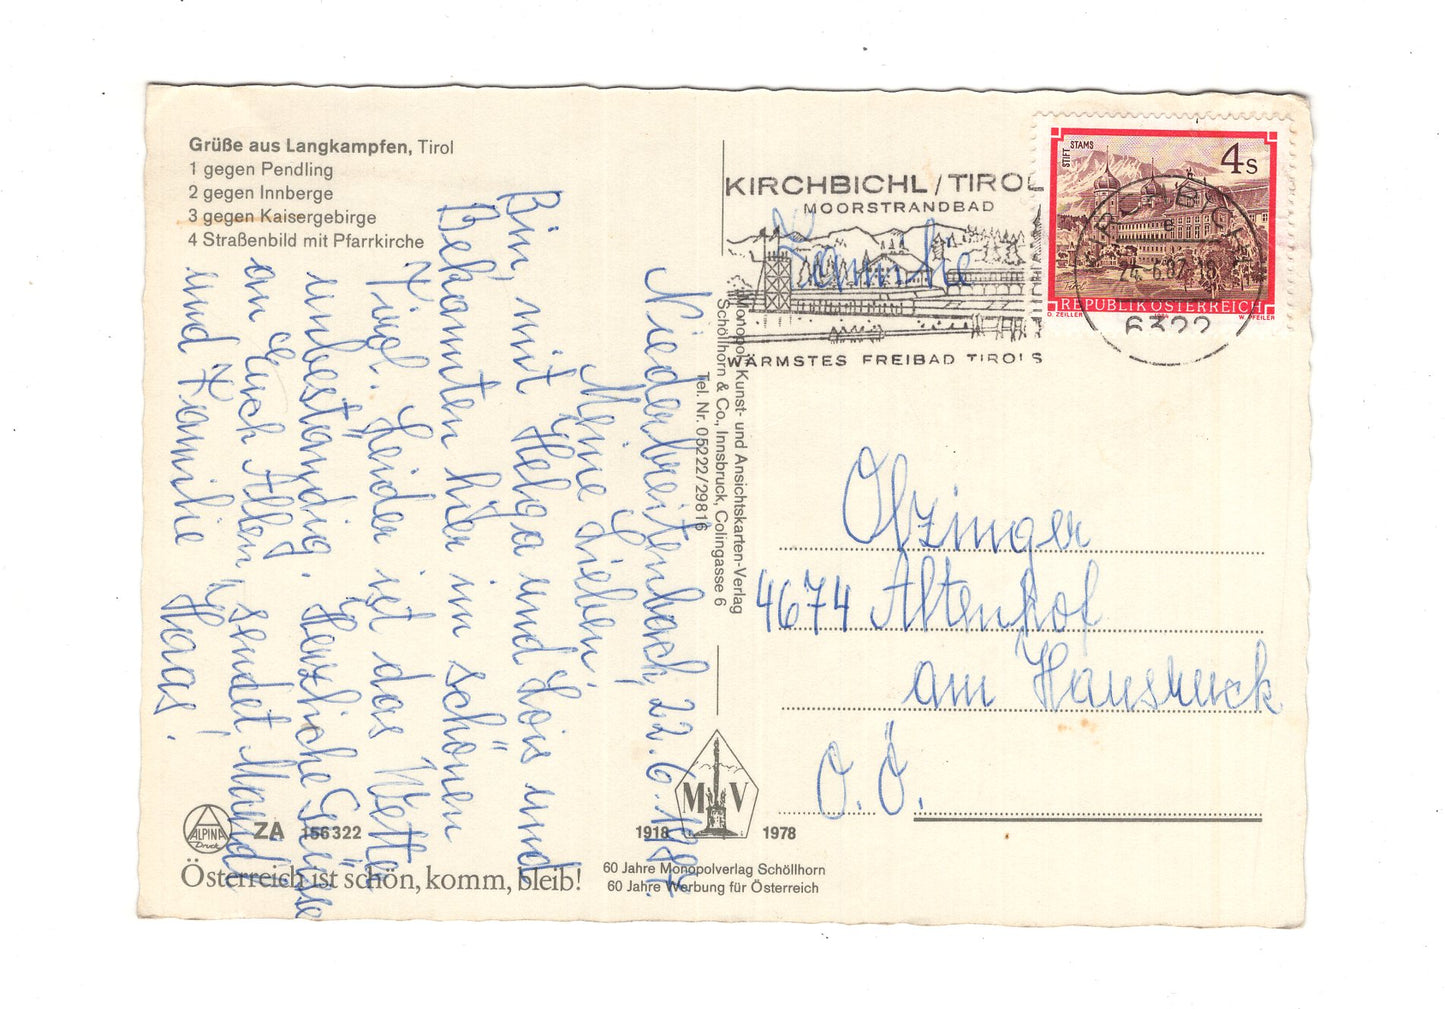 Grüße aus Langkampfen, Tirol
1 gegen Pendling
2 gegen Innberge
3 gegen Kaisergebirge
4 Straßenbild mit Pfarrkirche
Niederbreitenbach, 22.6.1987.
Meine Lieben,
Bin mit Helga und Lois und
Bekannten hier im schönen
Tirol. Leider ist das Wetter
unbeständig. Herzliche Grüsse
an Euch Allen, sendet Maridl
und Familie Haas!
ALPINA
Druck
ZA 156 322
Österreich ist schön, komm, bleib!
Monopol Kunst- und Ansichtskarten-Verlag
Schöllhorn & Co., Innsbruck, Colingasse 6
Tel. Nr. 05222/29816
M V
1918 1978
60 Jahre Monopolverlag Schöllhorn
60 Jahre Werbung für Österreich
KIRCHBICHL/TIROL
MOORSTRANDBAD
WÄRMSTES FREIBAD TIROLS
STIFT STAMS
4 S
REPUBLIK ÖSTERREICH
D. ZEILLER
W. PFEILER
KIRCHBICHL
24.-6.87-18
6322
Familie
Ofzinger
4674 Altenhof
am Hausruck
O.Ö.